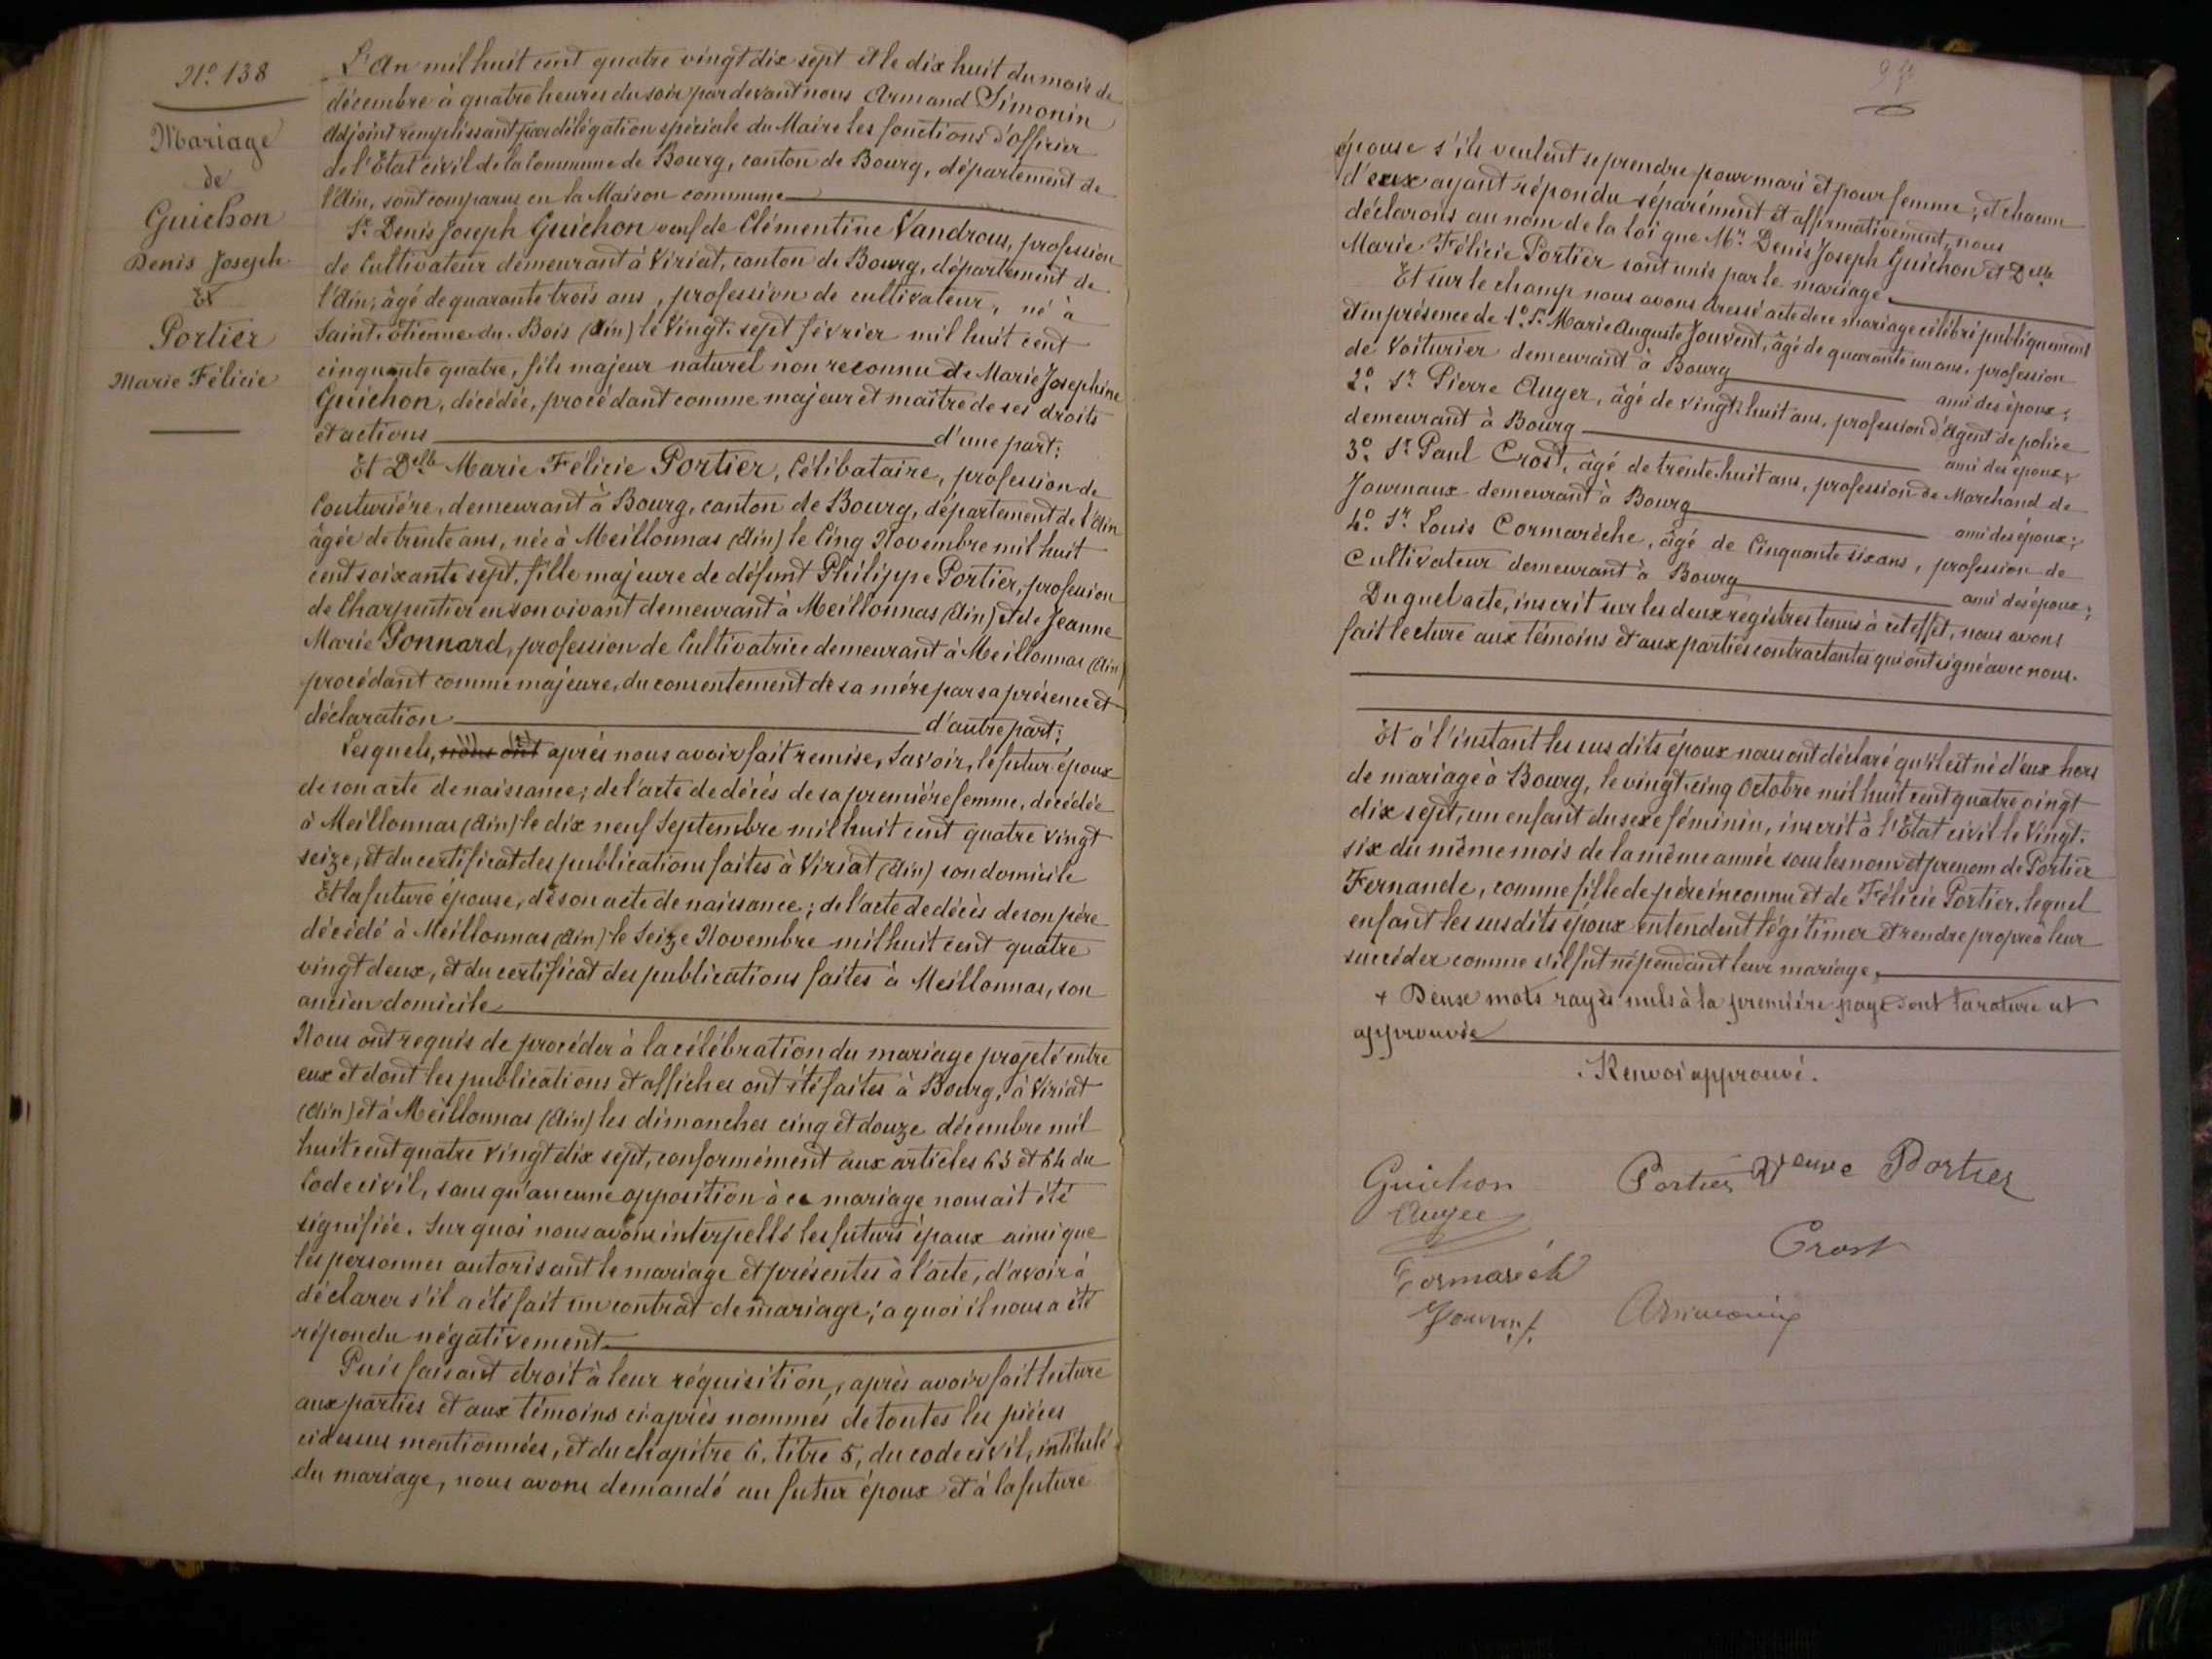 N° 138
Mariage
de
Guichon
Denis Joseph
Et
Portier
Marie Félicie
L'An mil huit cent quatre vingt dix sept et le dix huit du mois de
décembre à quatre heures du soir par devant nous Armand Simonin
Adjoint remplissant par délégation spéciale du Maire les fonctions d'officier
de l'Etat civil de la Commune de Bourg, canton de Bourg, département de
l'Ain, sont comparus en la Maison commune
Sr. Denis Joseph Guichon veuf de Clémentine Vandroux, profession
de Cultivateur demeurant à Viriat, canton de Bourg, département de
l'Ain, âgé de quarante trois ans, profession de cultivateur, né à
Saint-étienne-du-Bois (Ain) le Vingt-sept février mil huit cent
cinquante quatre, fils majeur naturel non reconnu de Marie Josephine
Guichon, décédée, procédant comme majeur et maître de ses droits
et actions d'une part;
Et Delle Marie Félicie Portier, Célibataire, profession de
Couturière, demeurant à Bourg, canton de Bourg, département de l'Ain
âgée de trente ans, née à Meillonnas (Ain) le Cinq Novembre mil huit
cent soixante sept, fille majeure de défunt Philippe Portier, profession
de Charpentier en son vivant demeurant à Meillonnas (Ain) et de Jeanne
Marie Ponnard, profession de Cultivatrice demeurant à Meillonnas (Ain)
procédant comme majeure, du consentement de sa mère par sa présence et
déclaration d'autre part;
Lesquels, nous ont après nous avoir fait remise, Savoir, le futur époux
de son acte de naissance; de l'acte de décès de sa première femme, décédée
à Meillonnas (Ain) le dix neuf Septembre mil huit cent quatre vingt
seize, et du certificat des publications faites à Viriat (Ain) son domicile
Et la future épouse, de son acte de naissance; de l'acte de décès de son père
décédé à Meillonnas (Ain) le Seize Novembre mil huit cent quatre
vingt deux, et du certificat des publications faites à Meillonnas, son
ancien domicile
Nous ont requis de procéder à la célébration du mariage projeté entre
eux et dont les publications et affiches ont été faites à Bourg, à Viriat
(Ain) et à Meillonnas (Ain) les dimanches cinq et douze décembre mil
huit cent quatre vingt dix sept, conformément aux articles 63 et 64 du
Code civil, sans qu'aucune opposition à ce mariage nous ait été
signifiée. Sur quoi nous avons interpellé les futurs époux ainsi que
les personnes autorisant le mariage et présentes à l'acte, d'avoir à
déclarer s'il a été fait un contrat de mariage; a quoi il nous a été
répondu négativement
Puis faisant droit à leur réquisition, après avoir fait lecture
aux parties et aux témoins ci-après nommés de toutes les pièces
ci dessus mentionnées, et du chapitre 6, titre 5, du code civil, intitulé
du mariage, nous avons demandé au futur époux et à la future
épouse s'ils veulent se prendre pour mari et pour femme; et chacun
d'eux ayant répondu séparément et affirmativement, nous
déclarons au nom de la loi que Mr. Denis Joseph Guichon et Delle
Marie Félicie Portier sont unis par le mariage.
Et sur le champ nous avons dressé acte de ce mariage célébré publiquement
et en présence de 1°. Sr. Marie Auguste Jouvent, âgé de quarante un ans, profession
de Voiturier demeurant à Bourg ami des époux;
2°. Sr. Pierre Auger, âgé de vingt huit ans, profession d'Agent de police
demeurant à Bourg ami des époux;
3°. Sr. Paul Crost, âgé de trente-huit ans, profession de Marchand de
Journaux demeurant à Bourg ami des époux;
4°. Sr. Louis Cormarèche, âgé de Cinquante six ans, profession de
Cultivateur demeurant à Bourg ami des époux;
Du quel acte, inscrit sur les deux registres tenus à cet effet, nous avons
fait lecture aux témoins et aux parties contractantes qui ont signé avec nous.
Et à l'instant les sus dits époux nous ont déclaré qu'il est né d'eux hors
de mariage à Bourg, le vingt-cinq Octobre mil huit cent quatre vingt
dix sept, un enfant du sexe féminin, inscrit à l'Etat civil le Vingt-
six du même mois de la même année sous les nom et prenom de Portier
Fernande, comme fille de père inconnu et de Félicie Portier, lequel
enfant les sus dits époux entendent légitimer et rendre propre à leur
succéder comme s'il fut né pendant leur mariage.
+ Deux mots rayés nuls à la première page dont la rature est
approuvée
Renvoi approuvé.
Guichon Portier Veuve Portier
Auger
Crost
Cormarèch
Jouvent